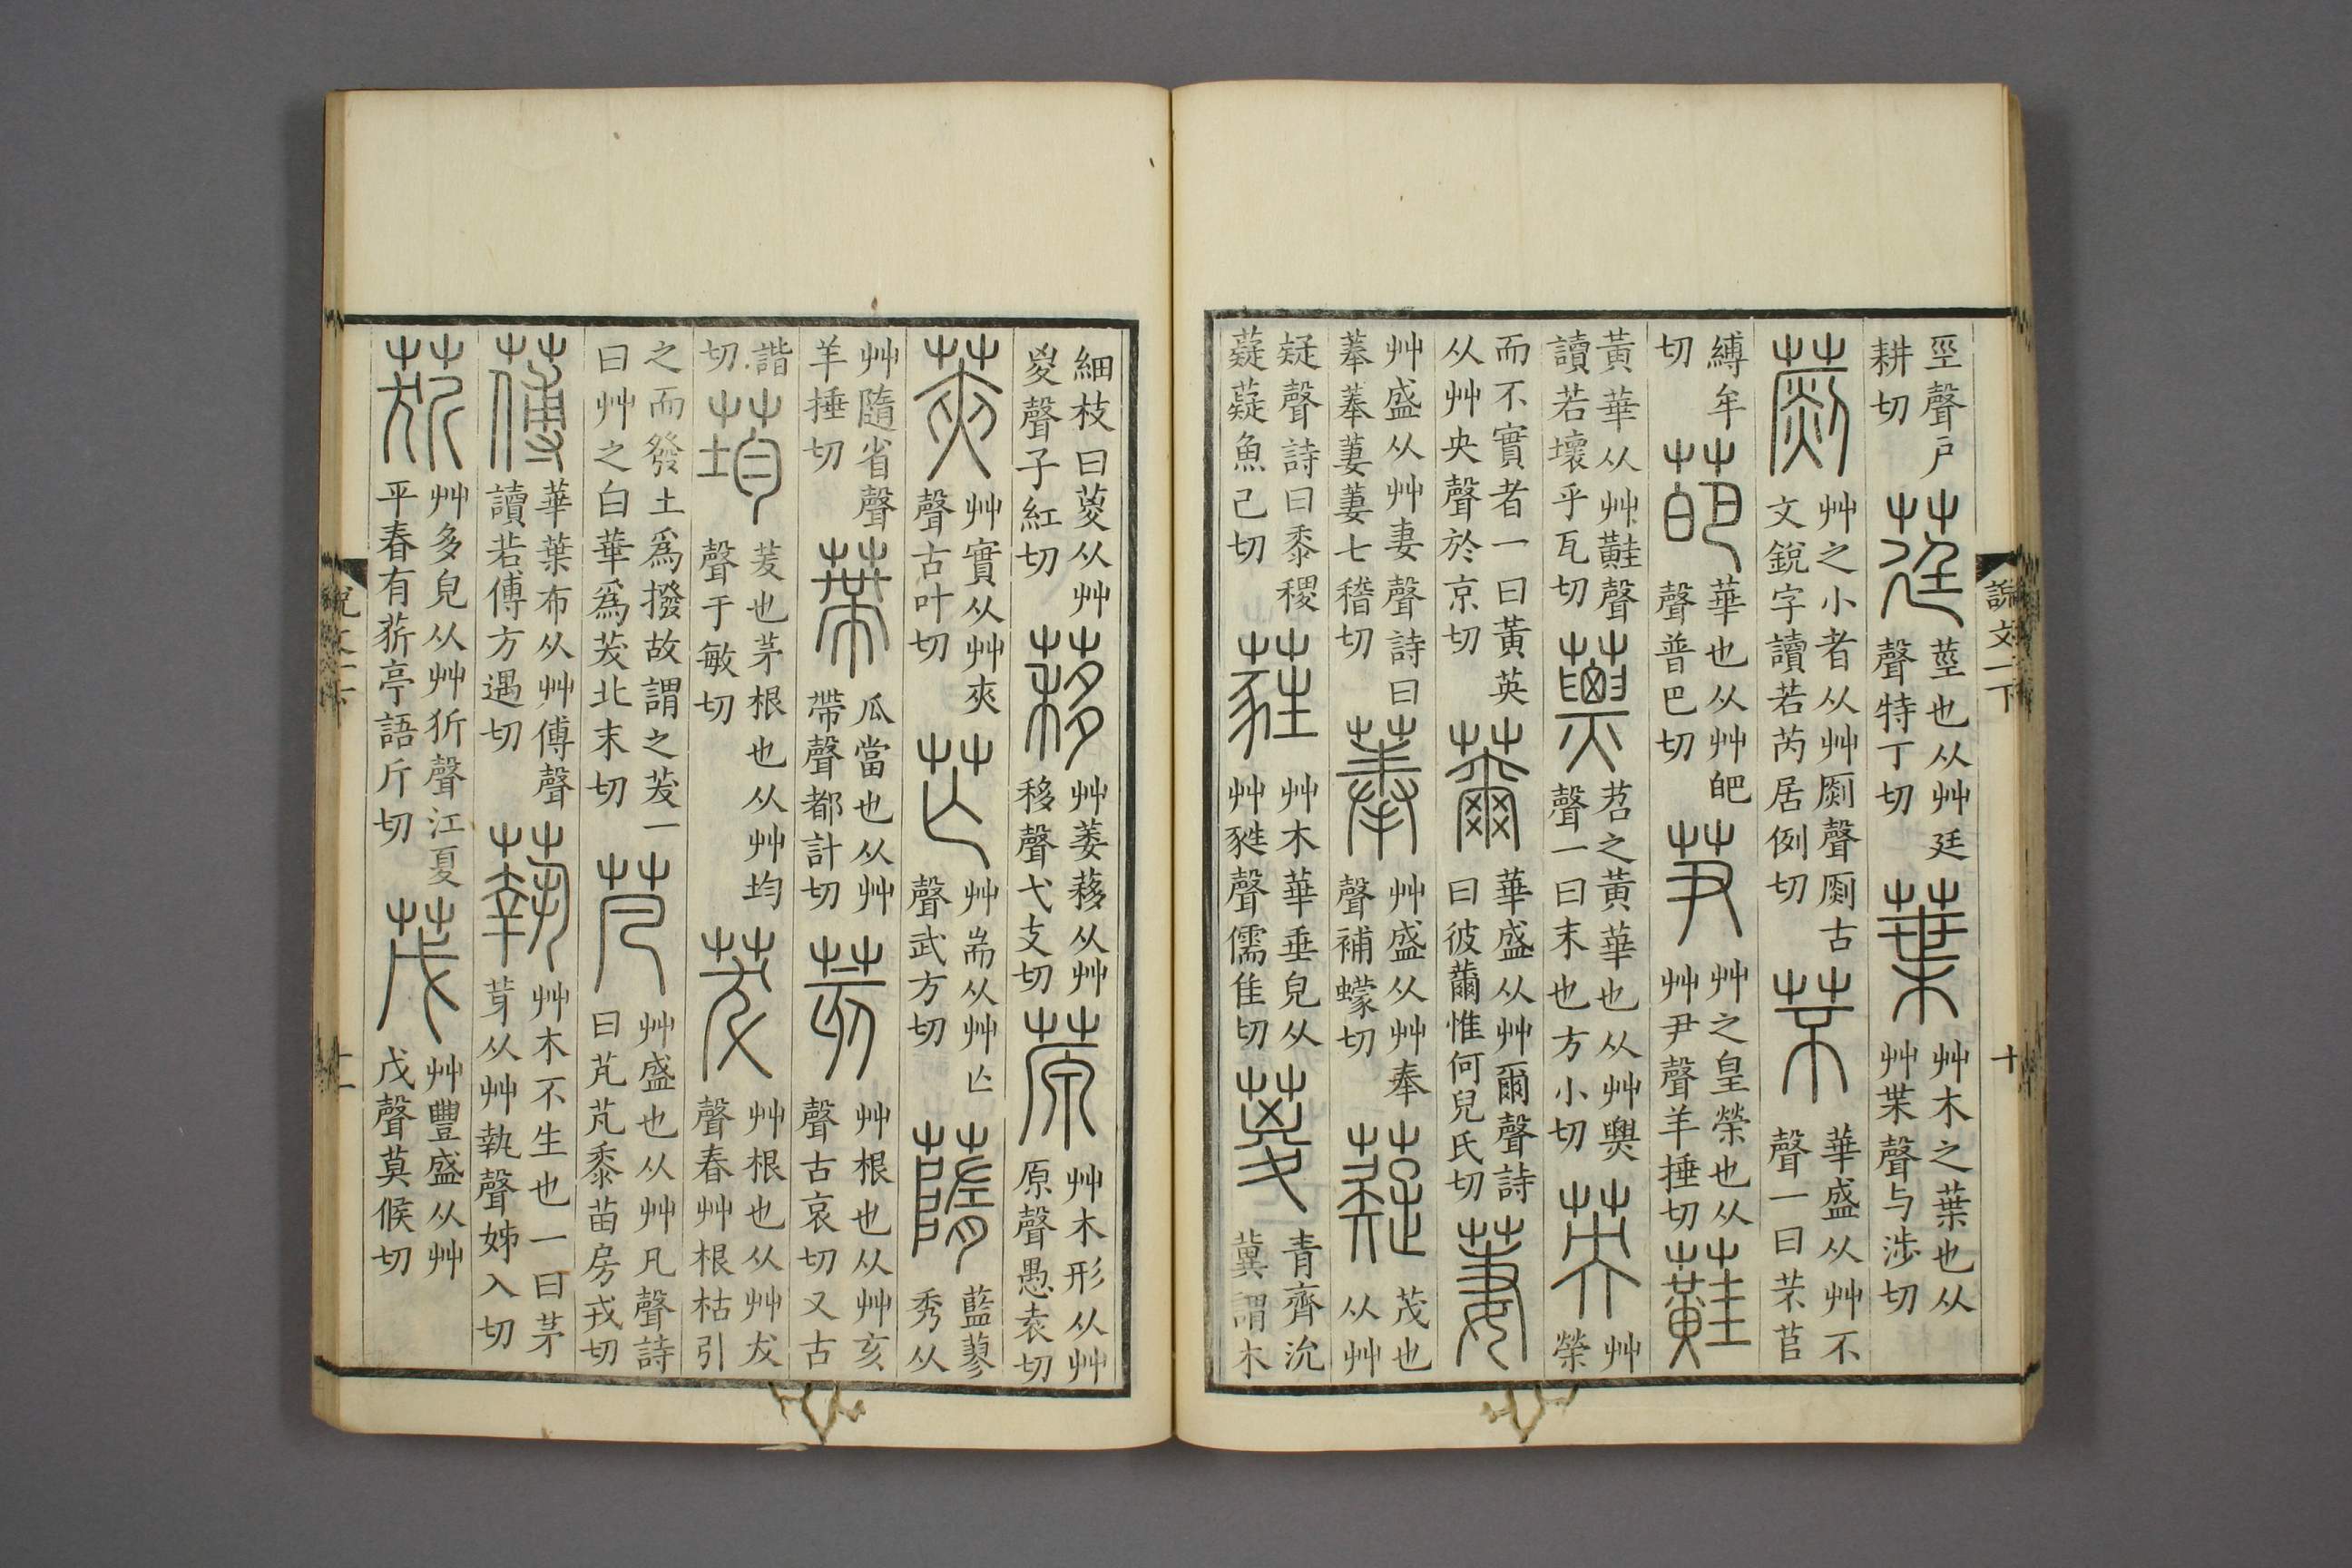 巠聲戶
耕切
莛
莖也从艸廷
聲特丁切
葉
艸木之葉也从
艸枼聲与涉切
𦿏
艸之小者从艸𠛬聲𠛬古
文銳字讀若芮居例切
芣
華盛从艸不
聲一曰芣苢
縛牟
切
葩
華也从艸皅
聲普巴切
芛
艸之皇榮也从
艸尹聲羊捶切
蘳
黃華从艸黊聲
讀若壞乎瓦切
蔈
苕之黃華也从艸㶾
聲一曰末也方小切
英
艸
榮
而不實者一曰黃英
从艸央聲於京切
薾
華盛从艸爾聲詩
曰彼薾惟何兒氏切
萋
艸盛从艸妻聲詩曰
菶菶萋萋七稽切
菶
艸盛从艸奉
聲補蠓切
薿
茂也
从艸
疑聲詩曰黍稷
薿薿魚己切
蕤
艸木華垂皃从
艸甤聲儒隹切
葼
青齊沇
冀謂木
細枝曰葼从艸
㚇聲子紅切
𦾏
艸萎𦾏从艸
移聲弋支切
蒝
艸木形从艸
原聲愚袁切
莢
艸實从艸夾
聲古叶切
芒
艸耑从艸亾
聲武方切
䔺
藍蓼
秀从
艸隨省聲
羊捶切
蔕
瓜當也从艸
帶聲都計切
荄
艸根也从艸亥
聲古哀切又古
諧
切
荺
茇也茅根也从艸均
聲于敏切
茇
艸根也从艸犮
聲春艸根枯引
之而發土爲撥故謂之茇一
曰艸之白華爲茇北末切
芃
艸盛也从艸凡聲詩
曰芃芃黍苗房戎切
蒪
華葉布从艸傅聲
讀若傅方遇切
蓻
艸木不生也一曰茅
芽从艸執聲姊入切
菥
艸多皃从艸㹞聲江夏
平春有𦳊亭語斤切
茂
艸豐盛从艸
戊聲莫候切
說文一下
十
說文一下
十一